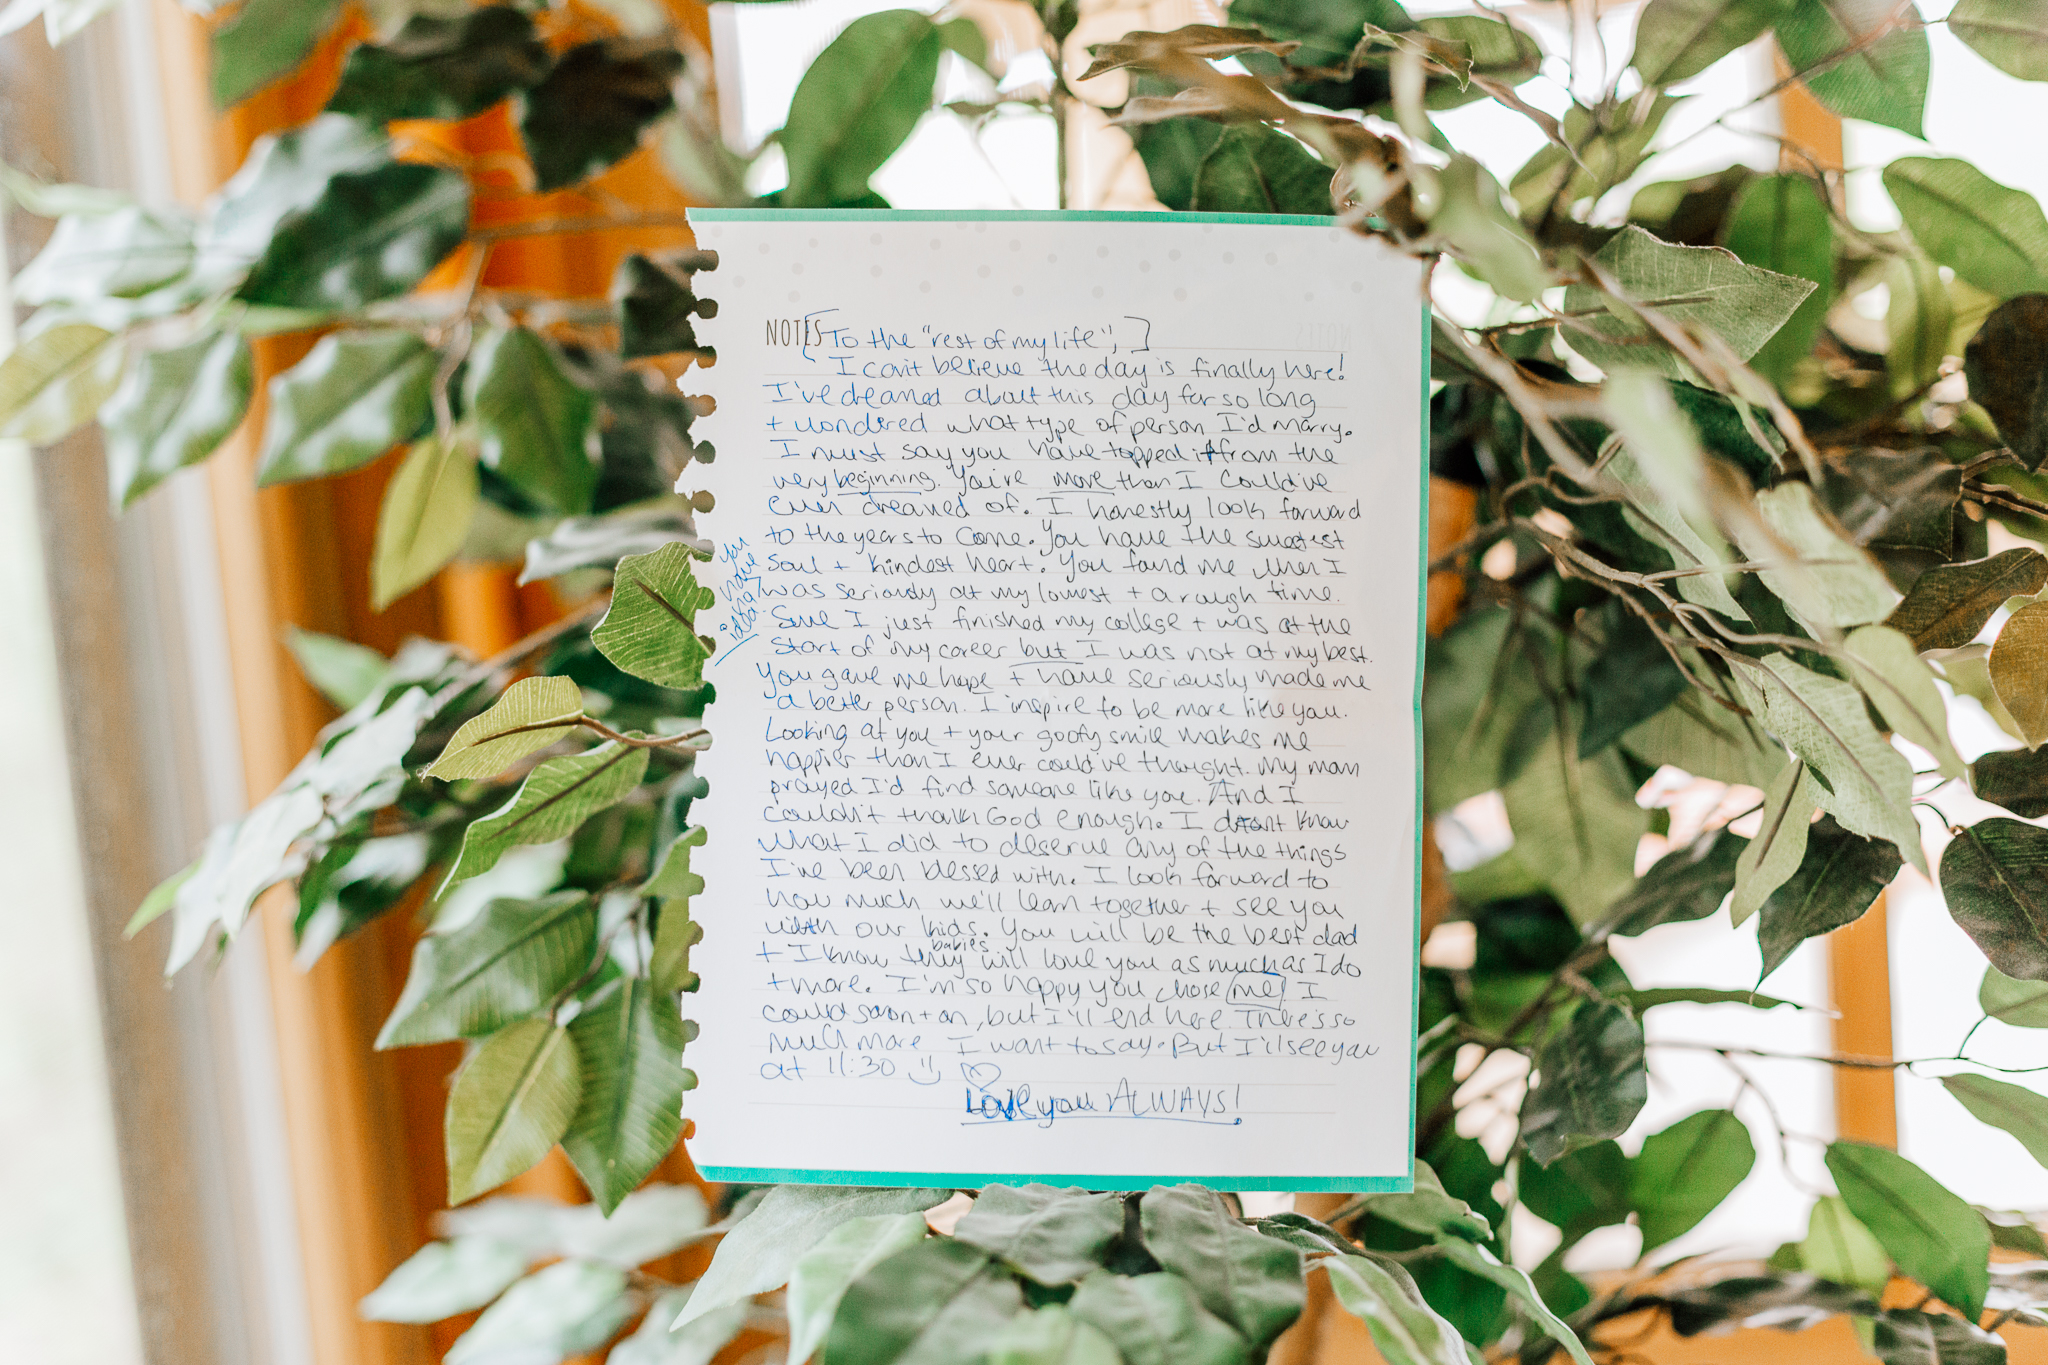 NOTES
[To the "rest of my life",]
I can't believe the day is finally here!
I've dreamed about this day for so long
+ wondered what type of person I'd marry.
I must say you have topped it from the
very beginning. You're more than I could've
ever dreamed of. I honestly look forward
to the years to come. You have the sweetest
soul + kindest heart. You found me when I
was seriously at my lowest + a rough time.
Sure I just finished my college + was at the
start of my career but I was not at my best.
You gave me hope + have seriously made me
a better person. I inspire to be more like you.
Looking at you + your goofy smile makes me
happier than I ever could've thought. My mom
prayed I'd find someone like you. And I
couldn't thank God enough. I don't know
what I did to deserve any of the things
I've been blessed with. I look forward to
how much we'll learn together + see you
with our kids. You will be the best dad
+ I know they babies will love you as much as I do
+ more. I'm so happy you chose me! I
could go on + on, but I'll end here. There's so
much more I want to say. But I'll see you
at 11:30
Love you ALWAYS!
you
have
no
idea